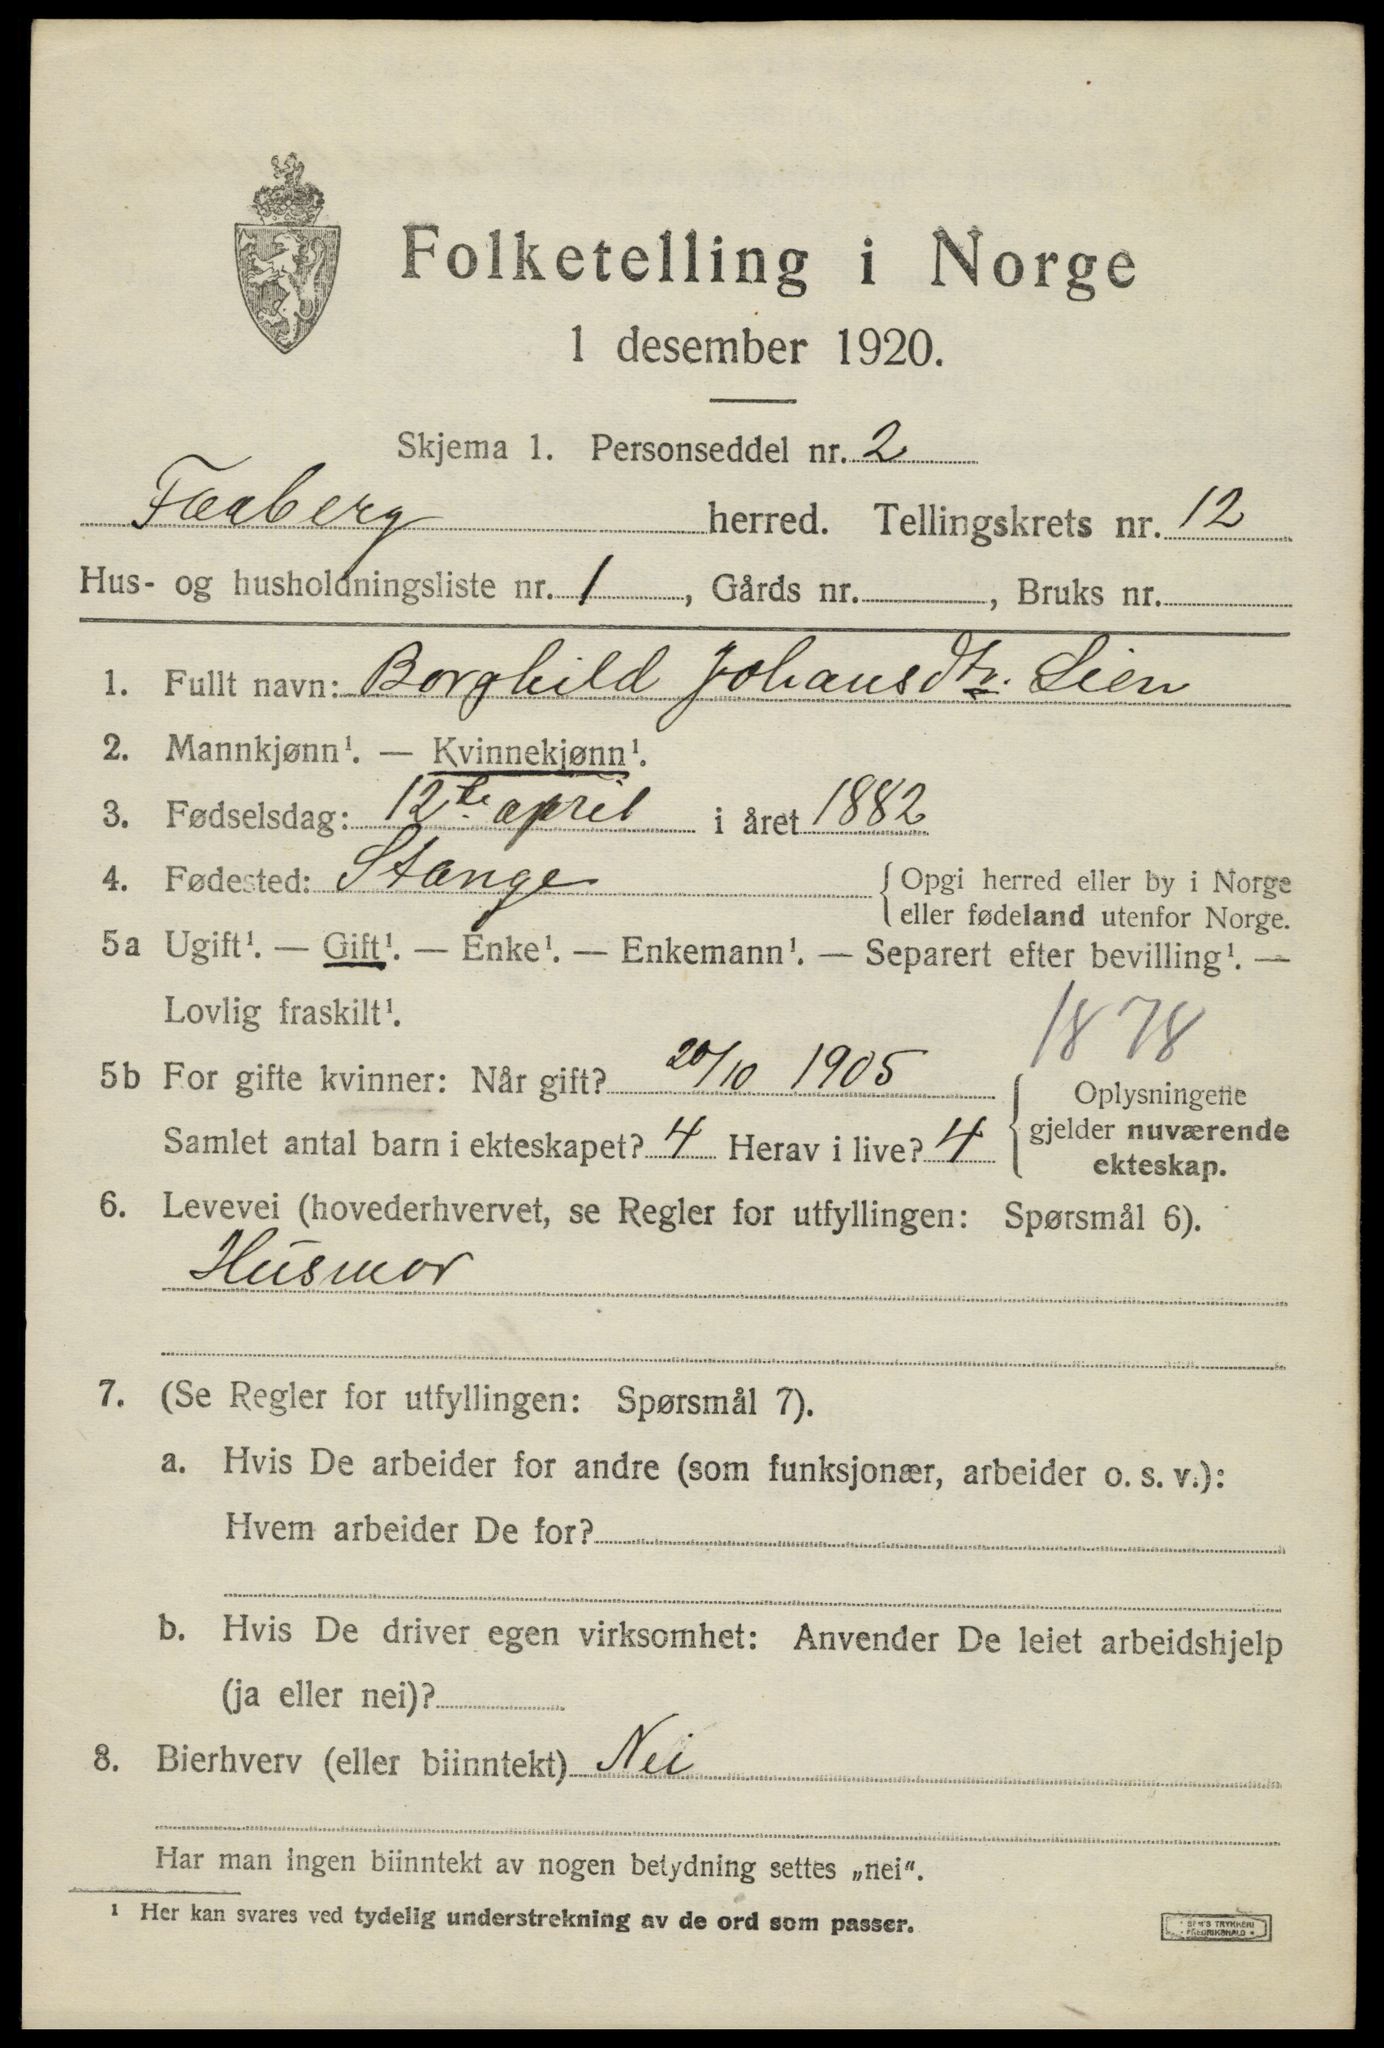 Folketelling i Norge
1 desember 1920.
Skjema 1. Personseddel nr. 2
Faaberg herred. Tellingskrets nr. 12
Hus- og husholdningsliste nr. 1, Gårds nr. , Bruks nr.
1. Fullt navn: Borghild Johansdtr. Lien
2. Mannkjønn¹. — Kvinnekjønn¹.
3. Fødselsdag: 12te april i året 1882
4. Fødested: Stange {Opgi herred eller by i Norge
eller fødeland utenfor Norge.
5a Ugift¹. — Gift¹. — Enke¹. — Enkemann¹. — Separert efter bevilling¹. —
Lovlig fraskilt¹.
1878
5b For gifte kvinner: Når gift? 20/10 1905
Samlet antal barn i ekteskapet? 4 Herav i live? 4
{Oplysningene
gjelder nuværende
ekteskap.
6. Levevei (hovederhvervet, se Regler for utfyllingen: Spørsmål 6).
Husmor
7. (Se Regler for utfyllingen: Spørsmål 7).
a. Hvis De arbeider for andre (som funksjonær, arbeider o. s. v.):
Hvem arbeider De for?
b. Hvis De driver egen virksomhet: Anvender De leiet arbeidshjelp
(ja eller nei)?
8. Bierhverv (eller biinntekt) Nei
Har man ingen biinntekt av nogen betydning settes „nei“.
¹ Her kan svares ved tydelig understrekning av de ord som passer.
TRYKKERI
FREDRIKSHALD